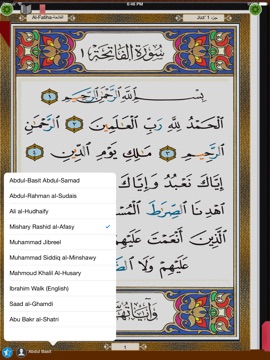 6:46 PM
Al-Fatiha الفاتحة
سورة الفاتحة ١
بسم الله الرحمن الرحيم ١
الحمد لله رب العالمين ٢ الرحمن
الرحيم ٣ مالك يوم الدين ٤
إياك نعبد وإياك
اهدنا الصراط المس
الذين أنعمت عليهم
عليهم ولا ال
Abdul-Basit Abdul-Samad
Abdul-Rahman al-Sudais
Ali al-Hudhaify
Mishary Rashid al-Afasy
Muhammad Jibreel
Muhammad Siddiq al-Minshawy
Mahmoud Khalil Al-Husary
Ibrahim Walk (English)
Saad al-Ghamdi
Abu Bakr al-Shatri
وآياتها
1
Abdul Basit